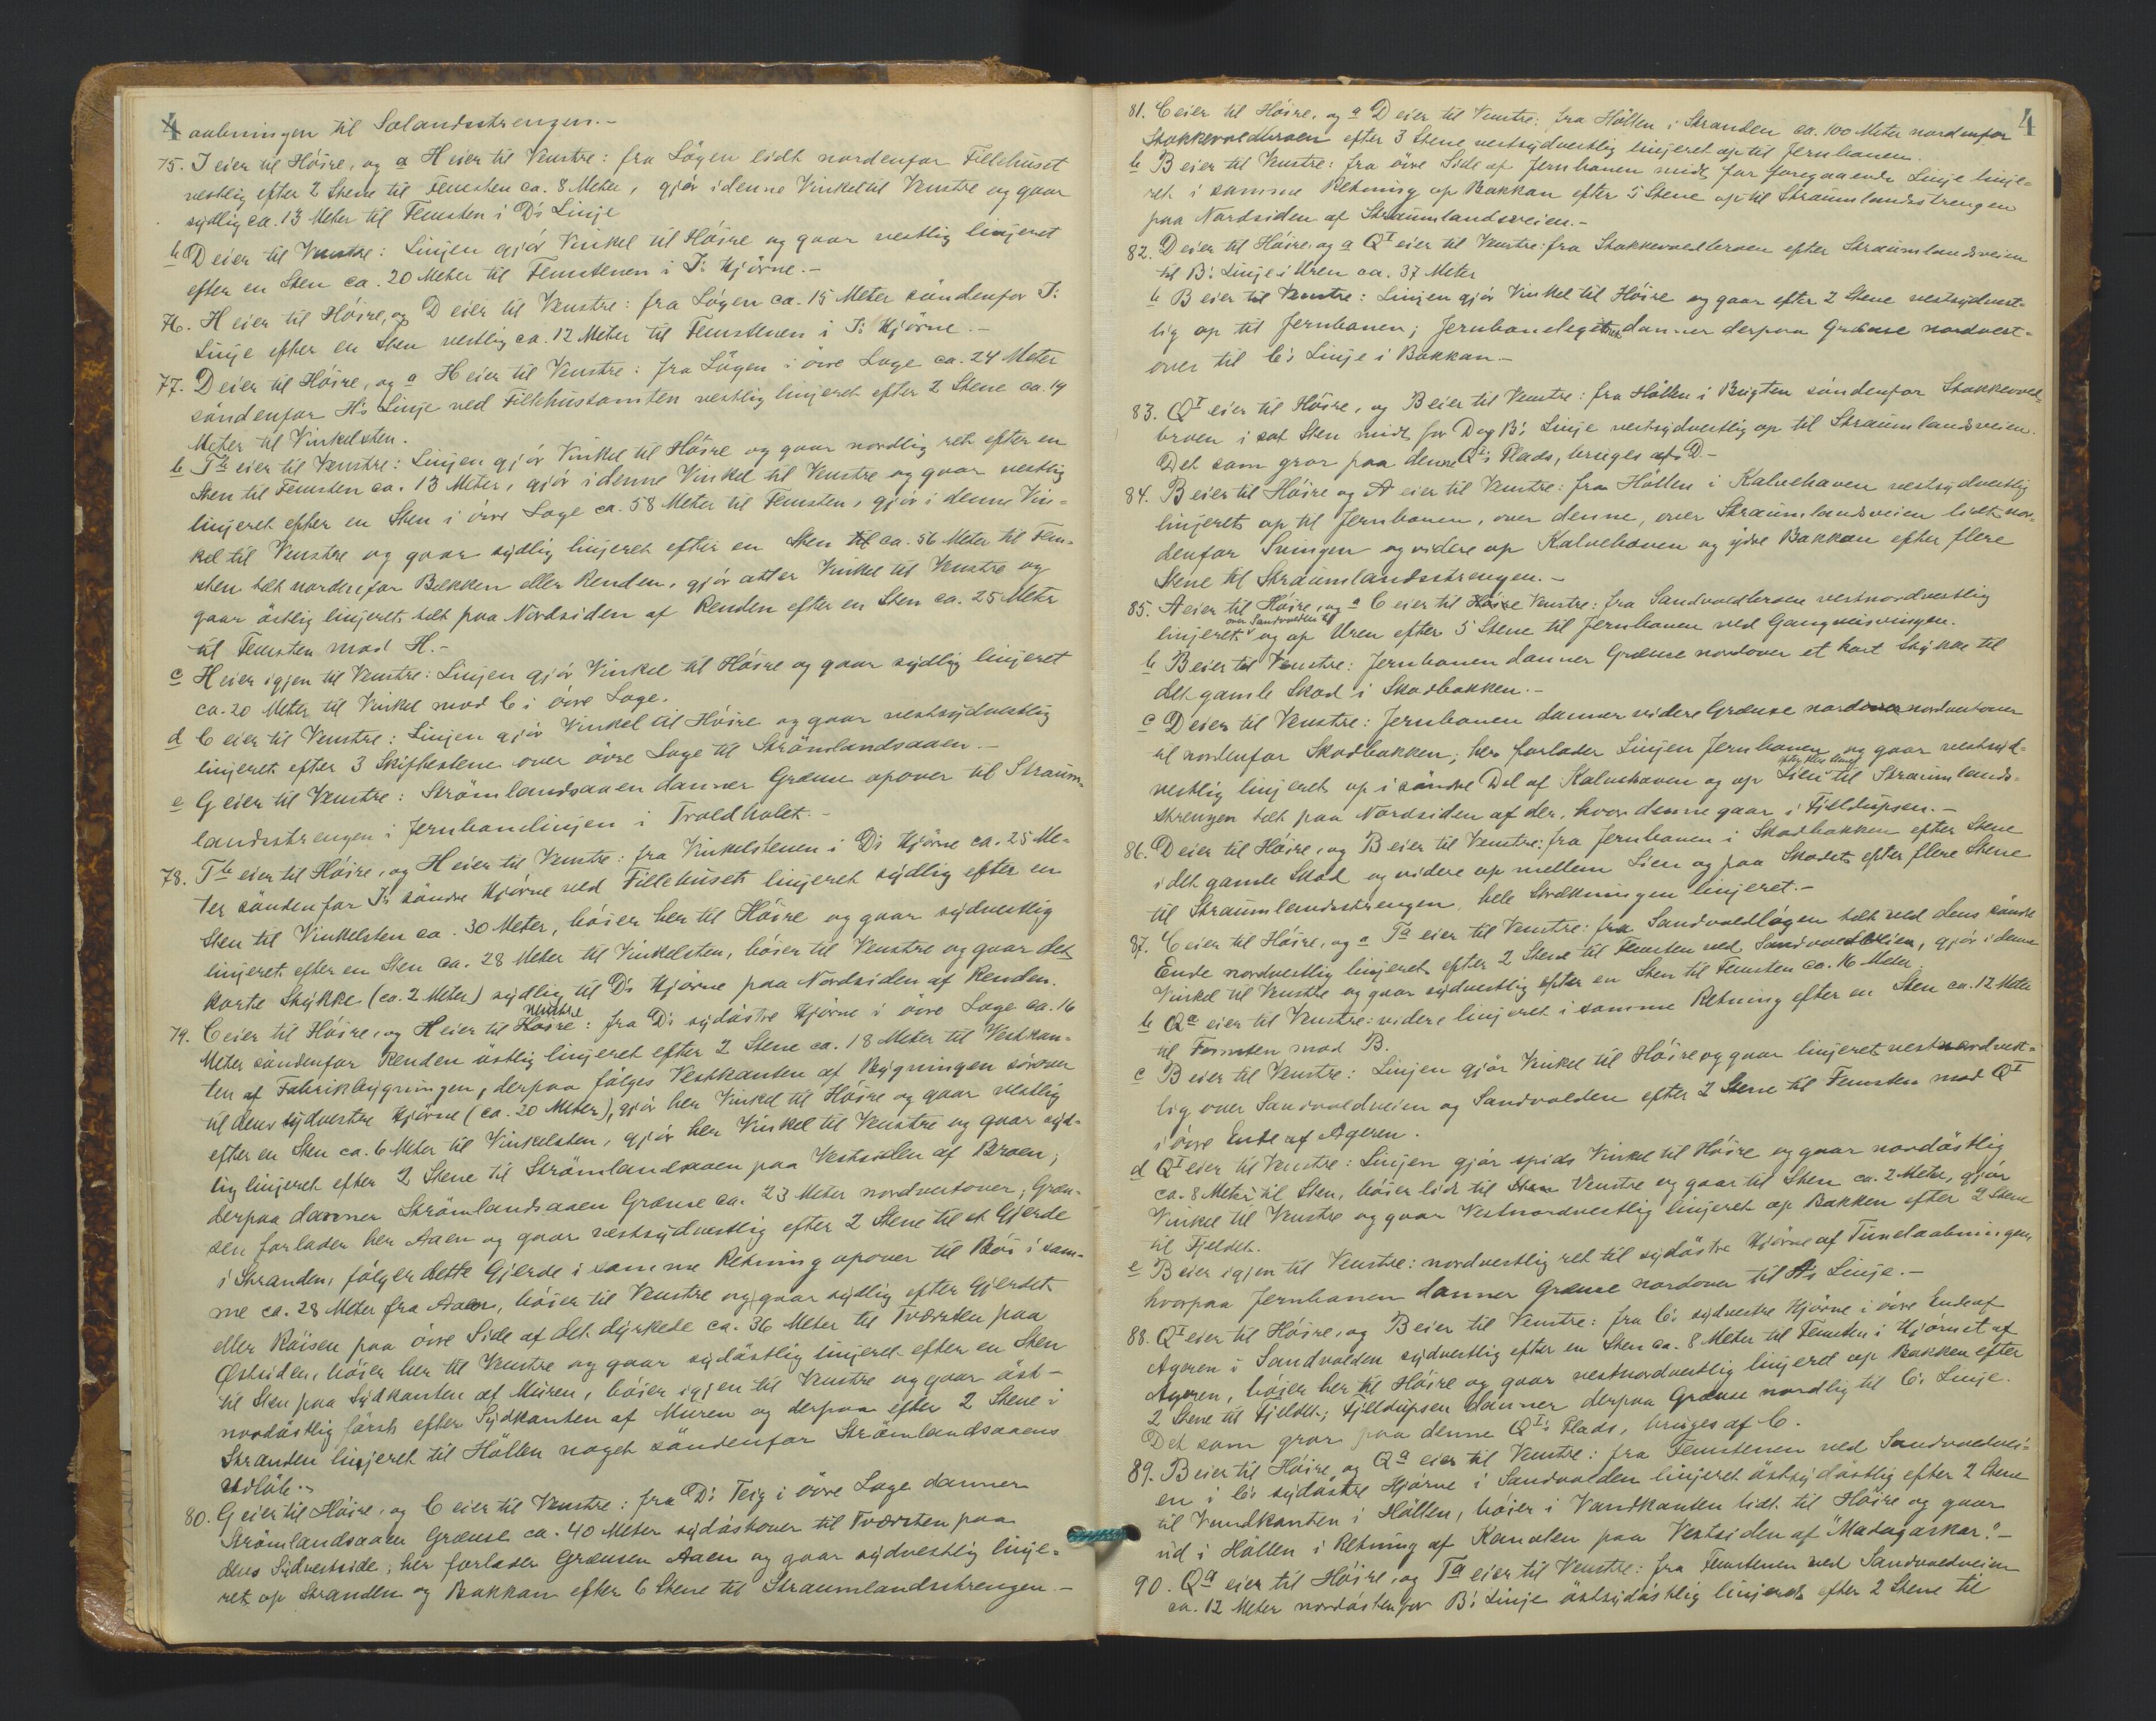 4
aabningen til Sœlandsstrengen.-
75. I eier til Höire, og a H eier til Venstre: fra Lögen lidt nordenfor Fillehuset
vestlig efter 2 Stene til Femsten ca. 8 Meter, gjör i denne Vinkel til Venstre og gaar
sydlig ca. 13 Meter til Femsten i D's Linje
b D eier til Venstre: Linjen gjör Vinkel til Höire og gaar vestlig linjeret
efter en Sten ca. 20 Meter til Femstenen i I's Hjörne.-
76. H eier til Höire, og D eier til Venstre: fra Lögen ca. 15 Meter söndenfor I's
Linje efter en Sten vestlig ca. 12 Meter til Femstenen i I's Hjörne.-
77. D eier til Höire, og a H eier til Venstre: fra Lögen i övre Lage ca. 24 Meter
söndenfor H's Linje ved Fillehustomten vestlig linjeret efter 2 Stene ca. 19
Meter til Vinkelsten.
b Tb eier til Venstre: Linjen gjör Vinkel til Höire og gaar nordlig ret efter en
Sten til Femsten ca. 13 Meter, gjör i denne Vinkel til Venstre og gaar vestlig
linjeret efter en Sten i övre Lage ca. 58 Meter til Femsten, gjör i denne Vin-
kel til Venstre og gaar sydlig linjeret efter en Sten til ca. 56 Meter til Fem-
sten tæt nordenfor Bækken eller Renden, gjör atter Vinkel til Venstre og
gaar östlig linjeret tæt paa Nordsiden af Renden efter en Sten ca. 25 Meter
til Femsten mod H.-
c H eier igjen til Venstre: Linjen gjör Vinkel til Höire og gaar sydlig linjeret
ca. 20 Meter til Vinkel mod C i övre Lage.
d C eier til Venstre: Linjen gjör Vinkel til Höire og gaar vestsydvestlig
linjeret efter 3 Skiftestene over övre Lage til Strömlandsaaen.-
e G eier til Venstre: Strömlandsaaen danner Grænse opover til Straum-
landsstrengen i Jernbanlinjen i Troldholet.-
78. Tb eier til Höire, og H eier til Venstre: fra Vinkelstenen i D's Hjörne ca. 25 Me-
ter söndenfor I's söndre Hjörne ved Fillehuset linjeret sydlig efter en
Sten til Vinkelsten ca. 30 Meter, böier her til Höire og gaar sydvestlig
linjeret efter en Sten ca. 28 Meter til Vinkelsten, böier til Venstre og gaar det
korte Stykke (ca. 2 Meter) sydlig til D's Hjörne paa Nordsiden af Renden.
79. C eier til Höire, og H eier til Höire venstre: fra D's sydöstre Hjörne i övre Lage ca. 16
Meter söndenfor Renden östlig linjeret efter 2 Stene ca. 18 Meter til Vestkan-
ten af Fabrikbygningen, derpaa fölges Vestkanten af Bygningen sörover
til dens sydvestre Hjörne (ca. 20 Meter), gjör her Vinkel til Höire og gaar vestlig
efter en Sten ca. 6 Meter til Vinkelsten, gjör her Vinkel til Venstre og gaar syd-
lig linjeret efter 2 Stene til Strömlandsaaen paa Vestsiden af Broen;
derpaa danner Strömlandsaaen Grænse ca. 23 Meter nordvestover; Græn-
sen forlader her Aaen og gaar vestsydvestlig efter 2 Stene til et Gjerde
i Stranden, fölger dette Gjerde i samme Retning opover til Röis i sam-
me ca. 28 Meter fra Aaen, böier til Venstre og gaar sydlig efter Gjerdet
eller Röisen paa övre Side af det dyrkede ca. 36 Meter til Tværsten paa
Östsiden, böier her til Venstre og gaar sydöstlig linjeret efter en Sten
til Sten paa Sydkanten af Muren, böier igjen til Venstre og gaar öst-
nordöstlig först efter Sydkanten af Muren og derpaa efter 2 Stene i
Stranden linjeret til Höllen noget söndenfor Strömlandsaaens
Udlöb.-
80. G eier til Höire, og C eier til Venstre: fra D's Teig i övre Lage danner
Strömlandsaaen Grænse ca. 40 Meter sydöstover til Tværsten paa
dens Sydvestside; her forlader Grænsen Aaen og gaar sydvestlig linje-
ret op Stranden og Bakkan efter 6 Stene til Straumlandsstrengen.-
4
81. C eier til Höire, og a D eier til Venstre: fra Höllen i Stranden ca. 100 Meter nordenfor
Stokkevedbroen efter 3 Stene vestsydvestlig linjeret op til Jernbanen.
b B eier til Venstre: fra övre Side af Jernbanen midt for foregaaende Linje linje-
ret i samme Retning op Bakkan efter 5 Stene op til Straumlandsstrengen
paa Nordsiden af Straumlandsveien.-
82. D eier til Höire, og a QI eier til Venstre: fra Stokkevedbroen efter Straumlandsveien
til B's Linje i Uren ca. 37 Meter
b B eier til Venstre: Linjen gjör Vinkel til Höire og gaar efter 2 Stene vestsydvest-
lig op til Jernbanen; Jernbanelegemet danner derpaa Grænse nordvest-
over til C's Linje i Bakkan.-
83. QI eier til Höire, og B eier til Venstre: fra Höllen i Bugten söndenfor Stokkeved-
broen i sat Sten midt for D og B's Linje vestsydvestlig op til Straumlandsveien.
Det som gror paa denne QI's Plads, bruges af D.-
84. B eier til Höire og A eier til Venstre: fra Höllen i Kalvehaven vestsydvestlig
linjeret op til Jernbanen, over denne, over Straumlandsveien lidt nor-
denfor Svingen og videre op Kalvehaven og ydre Bakkan efter flere
Stene til Straumlandsstrengen.-
85. A eier til Höire, og a C eier til Höire Venstre: fra Sandvoldbroen vestnordvestlig
linjeret over Sandvolden til og op Uren efter 5 Stene til Jernbanen ved Gangveisvingen.
b B eier til Venstre: Jernbanen danner Grænse nordover et kort Stykke til
det gamle Skod i Skodbakken.-
c D eier til Venstre: Jernbanen danner videre Grænse nordover nordvestover
til nordenfor Skodbakken; her forlader Linjen Jernbanen og gaar vestsyd-
vestlig linjeret op i söndre Del af Kalvehaven og op Lien efter flere Stene til Straumlands-
strengen tæt paa Nordsiden af der, hvor denne gaar i Fjeldupsen.-
86. D eier til Höire, og B eier til Venstre: fra Jernbanen i Skodbakken efter Stene
i det gamle Skod og videre op mellem Lien og paa Skodet efter flere Stene
til Straumlandsstrengen, hele Strækningen linjeret.-
87. C eier til Höire, og a Ta eier til Venstre: fra Sandvoldlögen tæt ved dens söndre
Ende nordvestlig linjeret efter 2 Stene til Femsten ved Sandvoldveien, gjör i denne
Vinkel til Venstre og gaar sydvestlig efter en Sten til Femsten ca. 16 Meter.
b Qa eier til Venstre: videre linjeret i samme Retning efter en Sten ca. 12 Meter
til Femsten mod B.
c B eier til Venstre: Linjen gjör Vinkel til Höire og gaar linjeret vestnordvest-
lig over Sandvoldveien og Sandvolden efter 2 Stene til Femsten mod QI
i övre Ende af Ageren.
d QI eier til Venstre: Linjen gjör spids Vinkel til Höire og gaar nordöstlig
ca. 8 Meter til Sten, böier lidt til Sten Venstre og gaar til Sten ca. 2 Meter, gjör
Vinkel til Venstre og gaar Vestnordvestlig linjeret op Bakken efter 2 Stene
til Fjeldet.
e B eier igjen til Venstre: nordvestlig ret til sydöstre Hjörne af Tunelaabningen,
hvorpaa Jernbanen danner Grænse nordover til A's Linje.-
88. QI eier til Höire, og B eier til Venstre: fra C's sydvestre Hjörne i övre Ende af
Ageren i Sandvolden sydvestlig efter en Sten ca. 8 Meter til Femsten i Hjörnet af
Ageren, böier her til Höire og gaar vestnordvestlig linjeret op Bakken efter
2 Stene til Fjeldet; Fjeldupsen danner derpaa Grænse nordlig til C's Linje.
Det som gror paa denne QI's Plads, bruges af C.
89. B eier til Höire, og Qa eier til Venstre: fra Femstenen ved Sandvoldvei-
en i C's sydöstre Hjörne i Sandvolden linjeret östsydöstlig efter 2 Stene
til Vandkanten i Höllen, böier i Vandkanten lidt til Höire og gaar
ud i Höllen i Retning af Kanalen paa Vestsiden af "Madagaskar."-
90. Qa eier til Höire, og Ta eier til Venstre: fra Femstenen ved Sandvoldveien
ca. 12 Meter nordöstenfor B's Linje östsydöstlig linjeret efter 2 Stene til